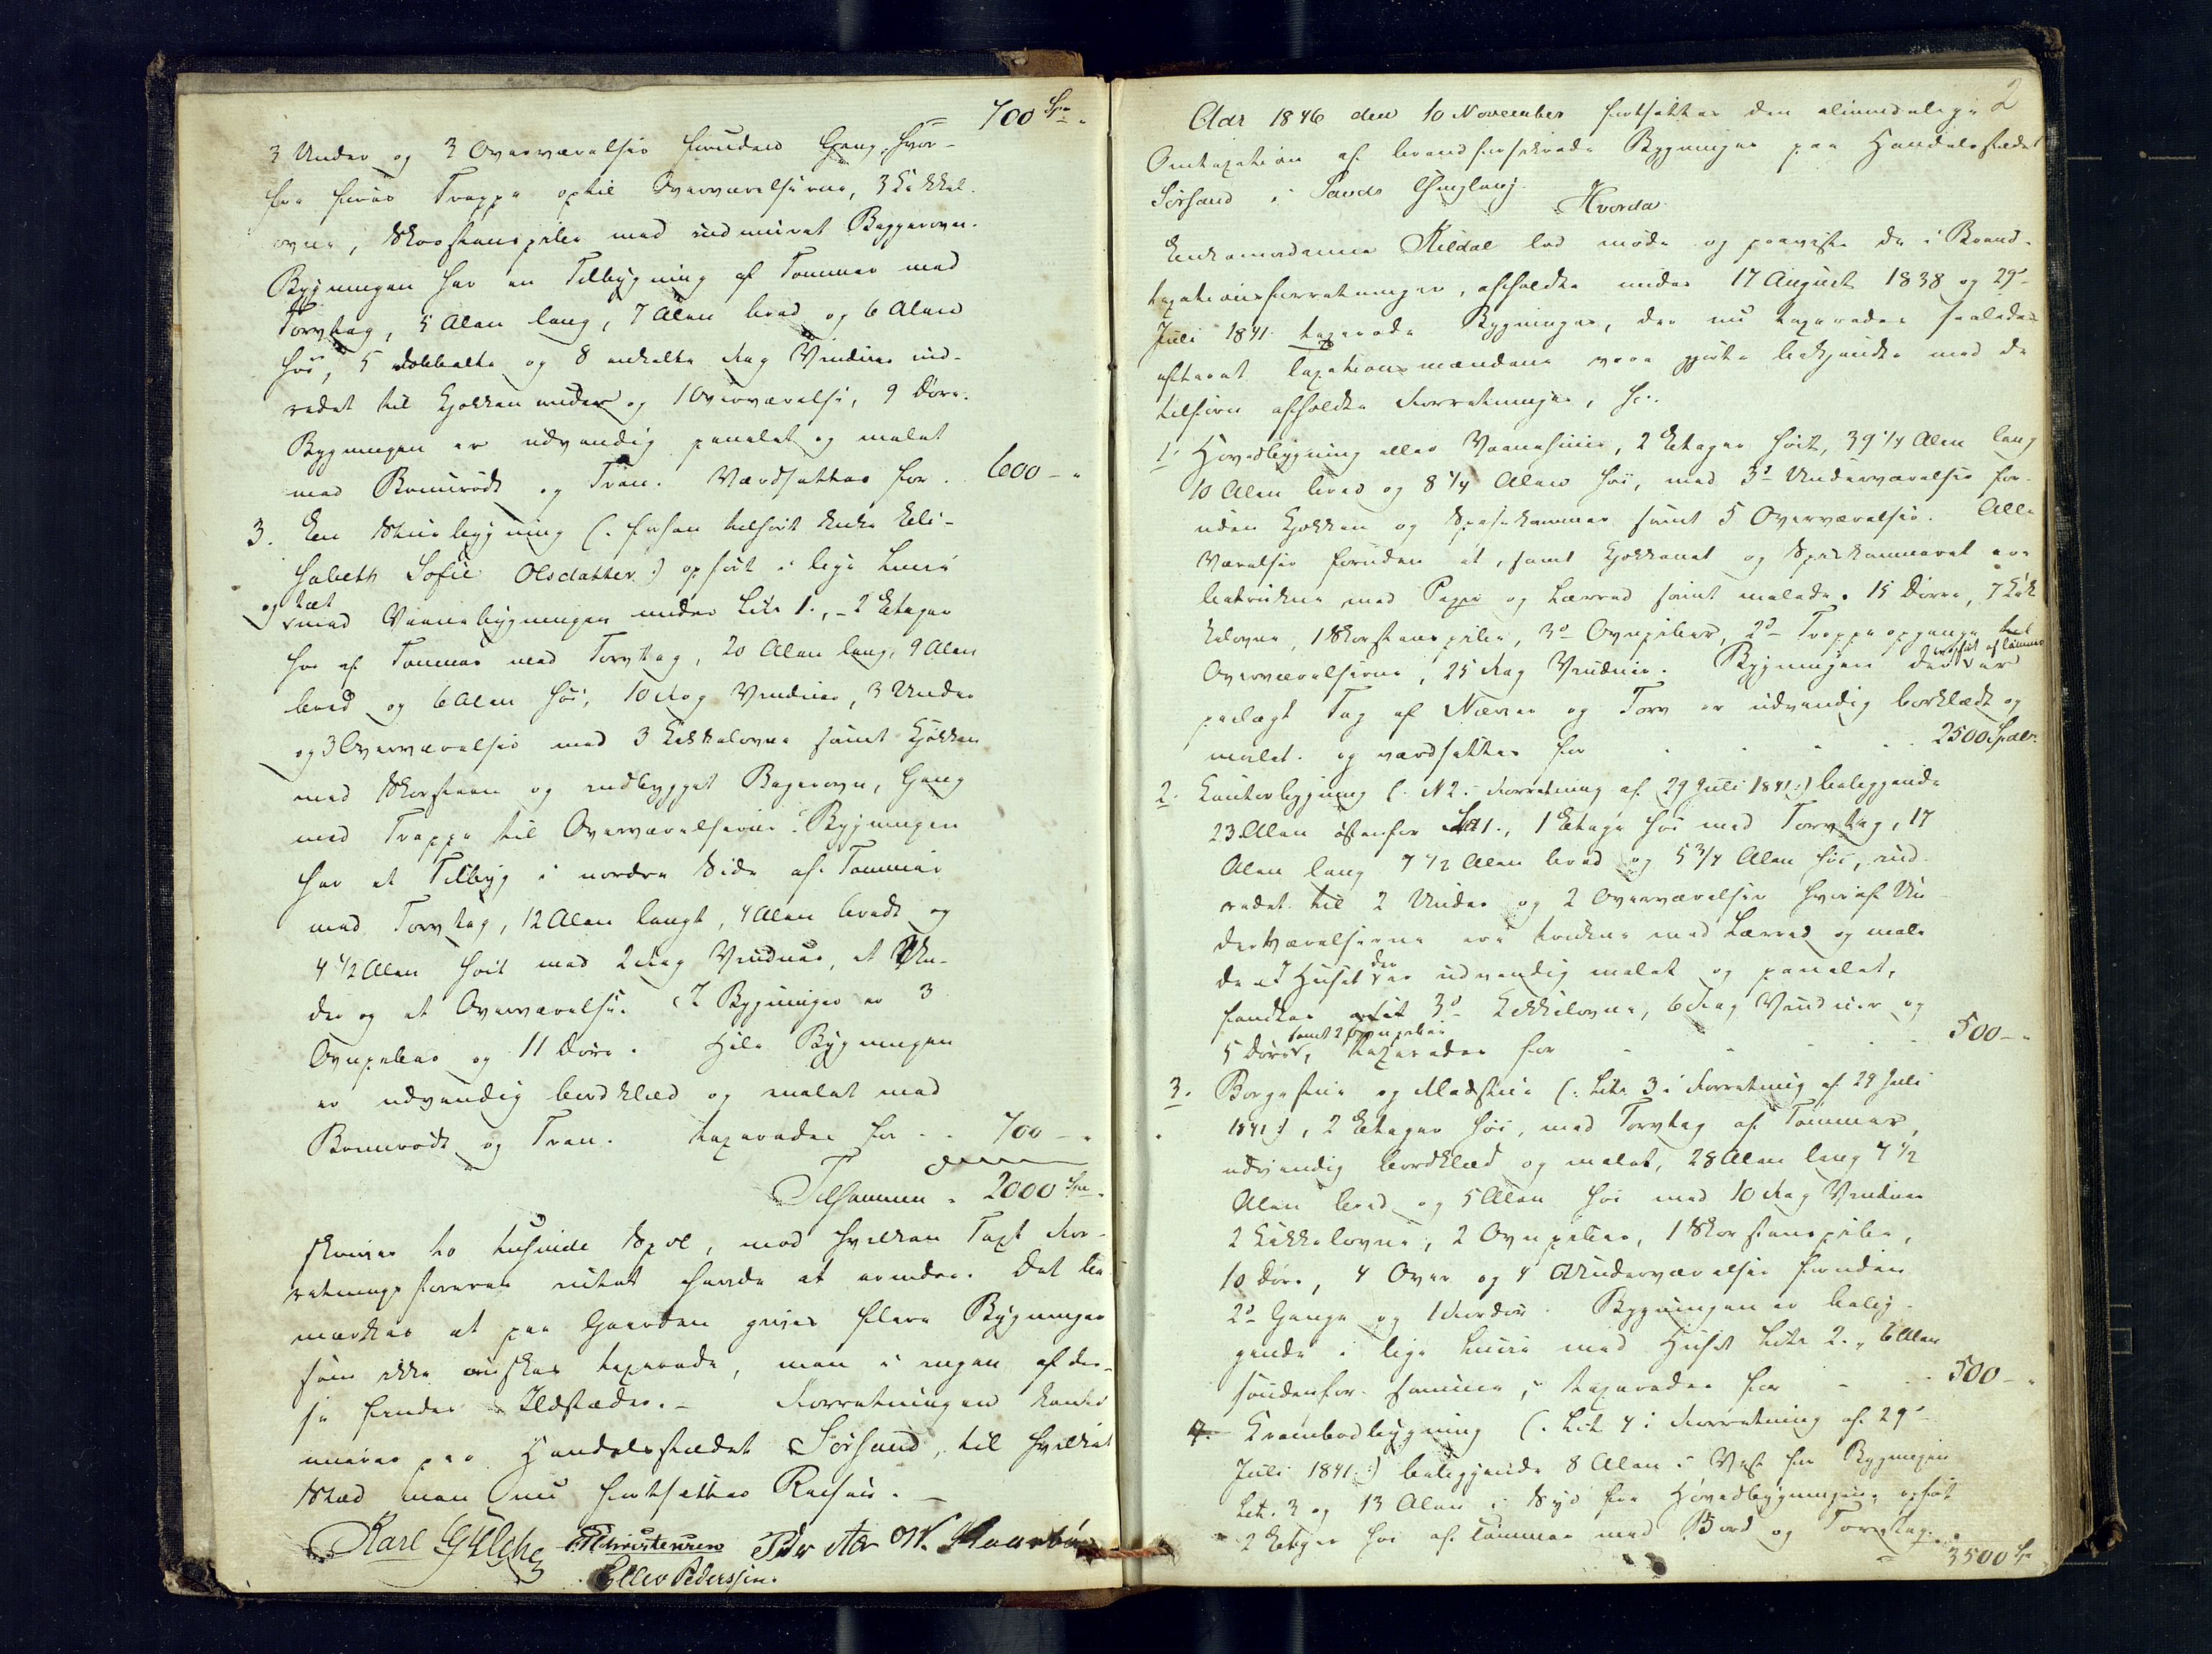 700 Spe
3 Under og 3 Overværelser foruden Gang, hvor-
fra fører Trappe optil Overværelserne, 3 Kakkel-
ovne, Skorstenspibe med indmuret Bagerovn.
Bygningen har en Tilbygning af Tømmer med
Torvtag, 5 Alen lang, 7 Alen bred og 6 Alen
høi, 5 dobbelte og 8 enkelte Fag Vinduer ind-
redet til Kjøkken under og 1 Overværelse, 9 Døre.
Bygningen er udvendig panelet og malet
med Bruunrødt og Tran. Værdsættes for . 600 - "
3. En Stuebygning (: forhen tilhørt Enke Eli-
sabeth Sofie Olsdatter :) opført i lige Linie
og tæt
med Vaanebygningen under Litr 1., - 2 Etager
høi af Tømmer med Torvtag, 20 Alen lang, 9 Alen
bred og 6 Alen høi, 10 Fag Vinduer, 3 Under
og 3 Overværelser med 3 Kakkelovne samt Kjøkken
med Skorsteen og indbygget Bagerovn, Gang
med Trappe til Overværelserne. Bygningen
har et Tilbyg i nordre Side af Tømmer
med Torvtag, 12 Alen langt, 4 Alen bredt og
4 1/2 Alen høit med 2 Fag Vinduer, et Un-
der og et Overværelse. I Bygningen er 3
Ovnpiber og 11 Døre. Hele Bygningen
er udvendig bordklæd og malet med
Bruunrødt og Tran. taxeredes for - . 700 - "
Tilsammen . 2000 Spe
skriver to tusinde Spdl, mod hvilken Taxt For-
retningsforeren intet havde at erindre. Det be-
mærkes at paa Gaarden gives flere Bygninger
som ikke ønskes taxerede, men i ingen af dis-
se findes Ildsteder. - Forretningen
paa Handelsstedet Sørsand, til hvilket
Sted man nu fortsætter Reisen. -
Karl Gylche Christensen Peder W.
Ellev Pederssen.
2
Aar 1846 den 10 November fortsættes den alimindelige
Omtaxation af brandforsikrede Bygninger paa Handelsstedet
Sørsand i Sands Thinglaug.
Hvorda
Enkemadamme Kildal lod møde og paaviste de i Brand-
taxationsforretninger, afholdte under 17 August 1838 og 29de
Juli 1841 taxerede Bygninger, der nu taxeredes saaledes
efterat Taxationsmændene vare gjorte bekjendte med de
tilforn afholdte Forretninger, sc:.
1. Hovedbygning eller Vaanehuus, 2 Etager høit, 39 1/4 Alen lang
10 Alen bred og 8 1/4 Alen høi, med 3de Underværelser for-
uden Kjøkken og Spisekammer samt 5 Overværelser. Alle
Værelser foruden et, samt Kjøkkenet og Spiskammeret ere
betrukne med Papir og Lærred samt malede. 15 Dørre, 7 Kak
kelovne, 1 Skorstenspibe, 3de Ovnpiber, 2de Trappeopgange til
opført af Tømmer
Overværelserne, 25 Fag Vinduer. Bygningen der er
paalagt Tag af Næver og Torv er udvendig bordklædt og
malet. og værdsættes for . . . . 2500 Spdlr.
2. Kontorbygning (: N 2. Forretning af 29 Juli 1841 :) beliggende
23 Alen østenfor La 1., 1 Etage høi med Torvtag, 17
Alen lang 7 1/2 Alen bred og 5 3/4 Alen høi, ind-
redet til 2 Under og 2 Overværelser hvoraf Un-
derværelserne ere trukne med Lærred og male
der
de. I Huset er udvendig malet og panelet,
fandtes 3de Kakkelovne, 6 Fag Vinduer og
samt 2 Ovnpiber
5 Dører, taxeredes for - - . . . 500 - "
3. Borgestue og Madstue (: Litr 3 i Forretning af 29 Juli
1841 :), 2 Etager høi, med Torvtag af Tømmer,
udvendig bordklæd og malet, 28 Alen lang 7 1/2
Alen bred og 5 Alen høi med 10 Fag Vinduer
2 Kakkelovne, 2 Ovnpiber, 1 Skorstenspibe,
10 Døre, 4 Over og 4 Underværelser foruden
2de Gange og 1 . Bygningen er belig-
gende i lige Linie med Huset Litr 2., 6 Alen
søndenfor samme, taxeredes for - . . 500 - "
4. Krambodbygning (: Lit 4 i Forretning af 29de
Juli 1841 :) beliggende 8 Alen i Vest fra Bygningen
Litr. 3 og 13 Alen i Syd fra Hovedbygningen, opført
2 Etager høi af Tømmer med Bord og Torvtag.
3500 Sp